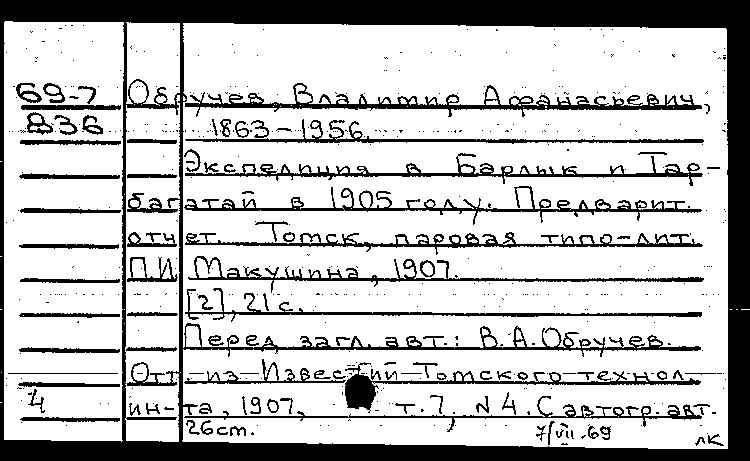 69-7 Обручев, Владимир Афанасьевич,
836 1863-1956.
Экспедиция в Барлык и Тар-
багатай в 1905 году. Предварит.
отчет. Томск, паровая типо-лит.
П.И Макушина, 1907.
[2], 21 с.
Перед загл. авт.: В.А.Обручев.
Отт. из Известий Томского технол.
4 ин-та, 1907, т.7, N 4. С автогр. авт.
26cm. 7/VII.69
лк